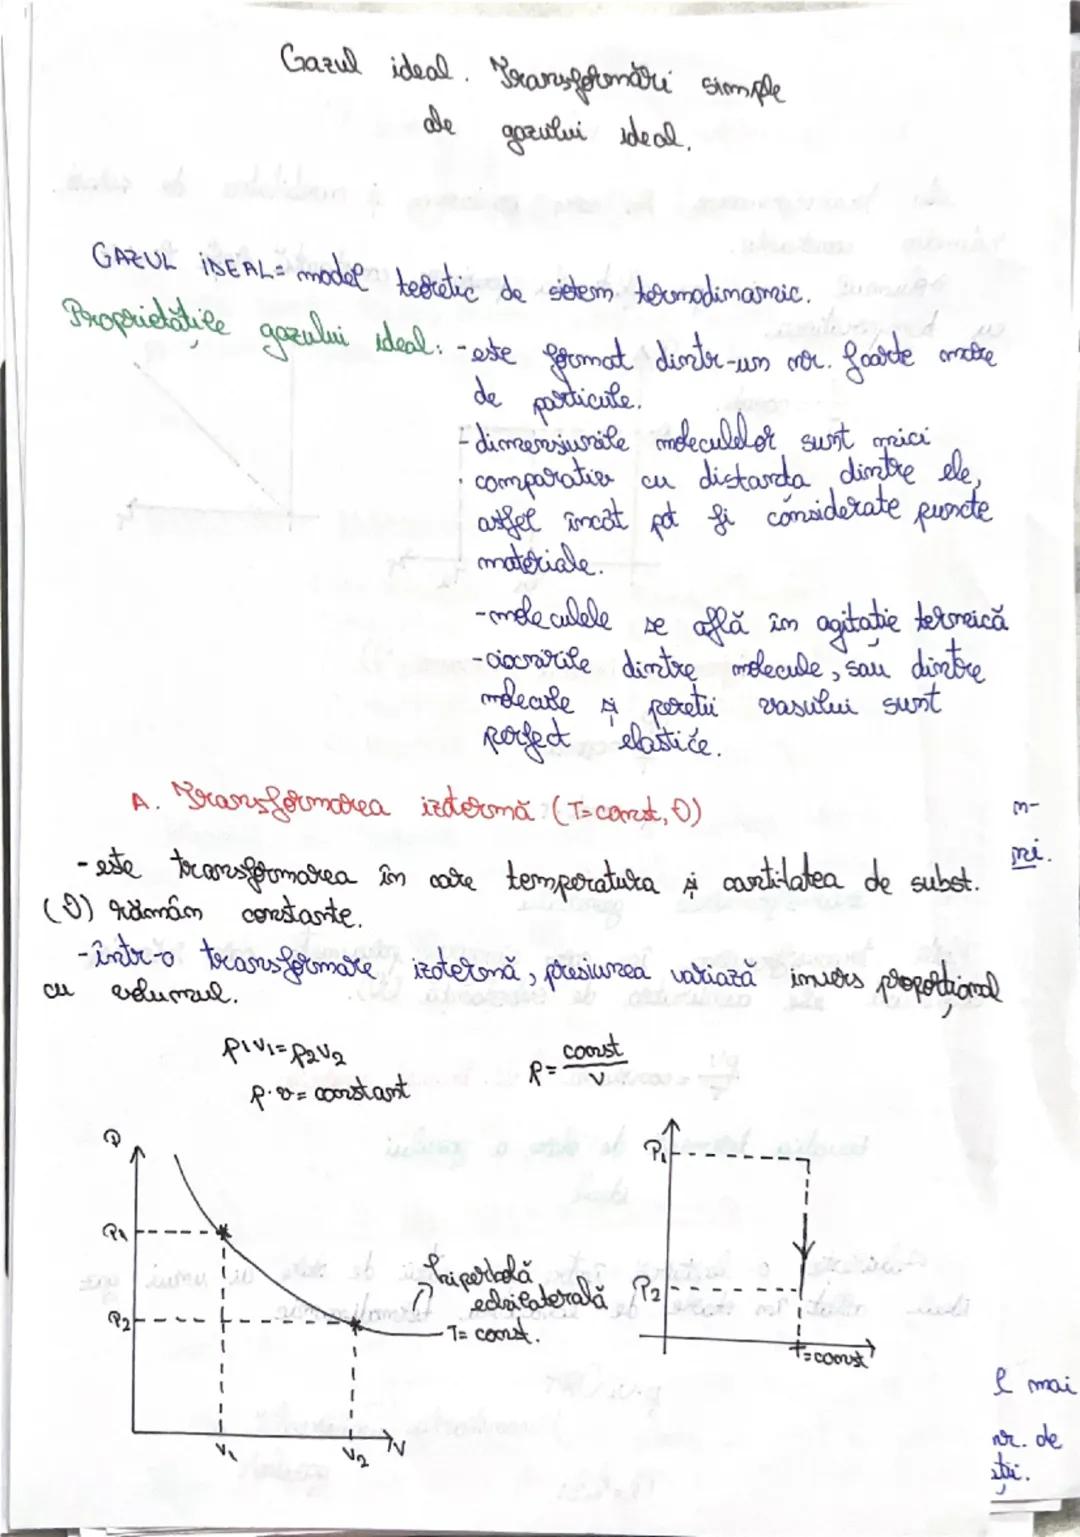 Gazul ideal. Transformări simple
ale gazului ideal.
GAZUL IDEAL= model teoretic de sistem termodinamic.
Proprietățile gazului ideal: -este format dintr-un nr. foarte mare
de particule.
-dimensiunile moleculelor sunt mici
comparativ cu distanța dintre ele,
astfel încât pot fi considerate puncte
materiale.
-moleculele se află în agitație termică
-ciocnirile dintre molecule, sau dintre
molecule și pereții vasului sunt
perfect elastice.
A. Transformarea izotermă (T=const, ν)
-este transformarea în care temperatura și cantitatea de subst.
(ν) rămân constante.
-într-o transformare izotermă, presiunea variază invers proporțional
cu volumul.
p1V1=p2V2
p=const/V
p·v=constant
P
P1
P2
V1
V2
V
hiperbolă
echilaterală
T=const.
P1
P2
T=const
m-
ni.
l mai
nr. de
ții.